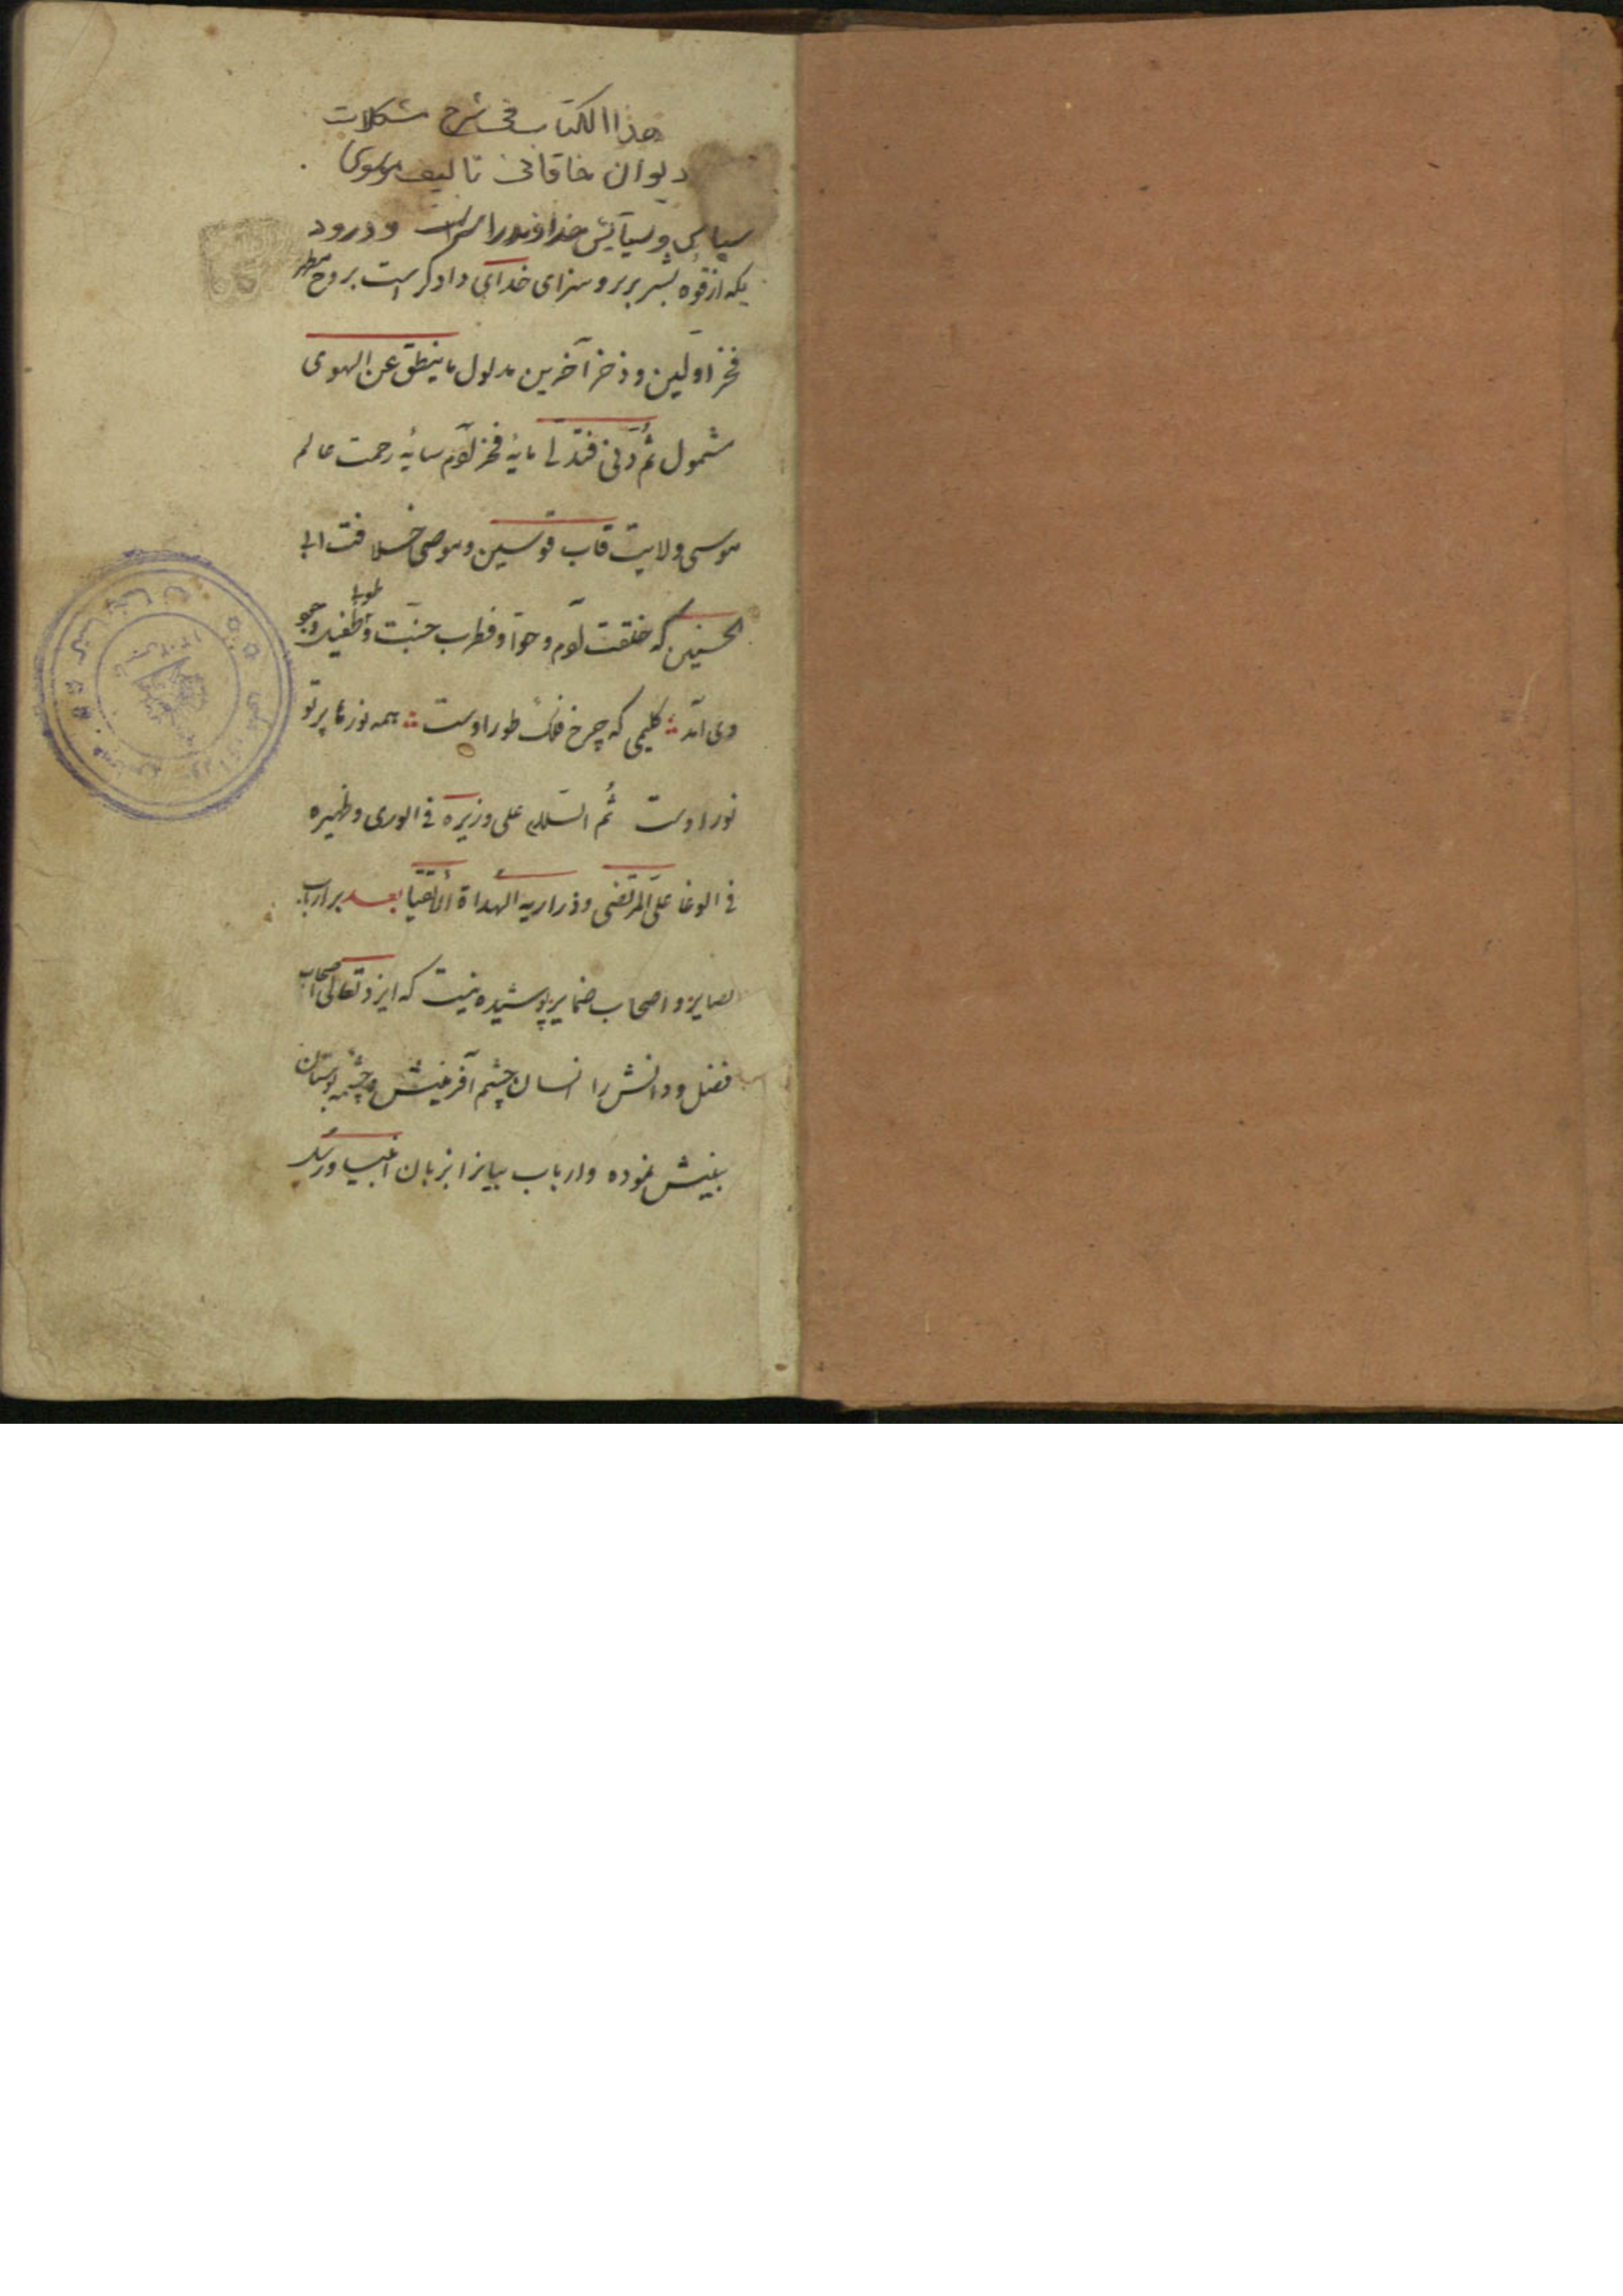 هذا الكتاب فی شرح مشکلات
دیوان خاقانی تالیف موسوی
سپاس و ستایش خداوندرا سزاست و درود
یکه از قوه بشر برترو سزای خدای دادکر است بر روح مطهر
فخر اولین و ذخر آخرین مدلول ما ینطق عن الهوی
مشمول ثم دنی فتدلی مایهٔ فخر آدم سایهٔ رحمت عالم
موسی ولایت قاب قوسین وموصی خلافت ابی
الحسنین که خلقت آدم و حوا و جنت و طوبا طفیل وجود
وی آمد کلیمی که چرخ فلک طور اوست همه نورها پرتو
نور اوست ثم السلام علی وزیره فی الوری و ظهیره
فی الوغا علی المرتضی و ذراریه الهداة الاتقیا بعد بر ارباب
بصایر و اصحاب ضمایر پوشیده نیست که ایزد تعالی اصحاب
فضل و دانش را انسان چشم آفرینش و چشمه بوستان
بینش نموده و ارباب بیانرا بزبان انبیا و رسل